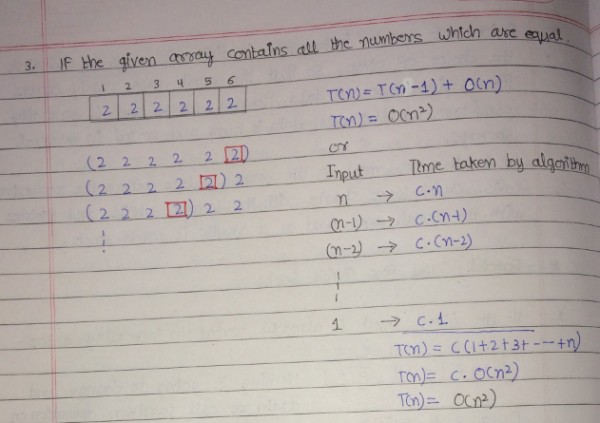 3. IF the given array contains all the numbers which are equal.
1 2 3 4 5 6
2 2 2 2 2 2
(2 2 2 2 2 2)
(2 2 2 2 2) 2
(2 2 2 2) 2 2
T(n) = T(n-1) + O(n)
T(n) = O(n²)
or
Input Time taken by algorithm
n → C.n
(n-1) → C.(n-1)
(n-2) → C.(n-2)
1 → C.1
T(n) = C(1+2+3+----+n)
T(n) = C.O(n²)
T(n) = O(n²)